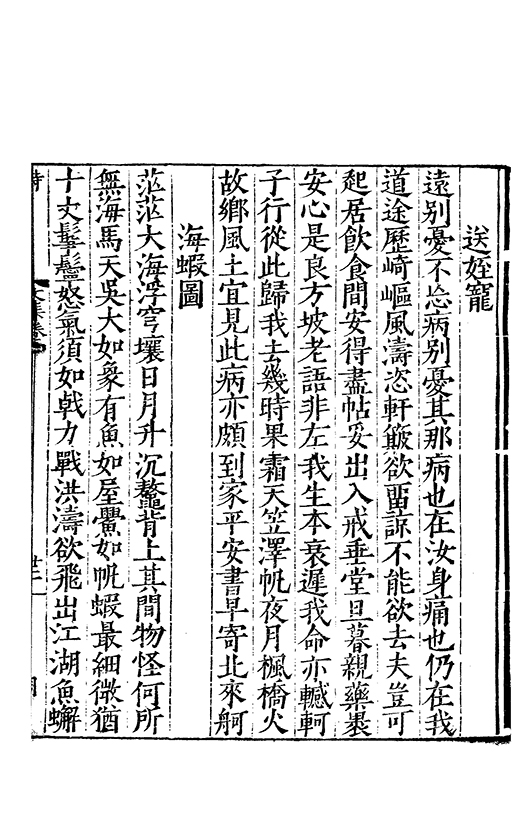 送姪寵
遠別憂不忘病別憂其那病也在汝身痛也仍在我
道途歷崎嶇風濤恣軒簸欲畱諒不能欲去夫豈可
起居飲食間安得盡帖妥出入戒垂堂旦暮親藥裹
安心是良方坡老語非左我生本衰遲我命亦轗軻
子行從此歸我去幾時果霜天笠澤帆夜月楓橋火
故鄉風土宜見此病亦頗到家平安書早寄北來舸
海蝦圖
茫茫大海浮穹壤日月升沉鼇背上其間物怪何所
無海馬天吳大如象有魚如屋鱟如帆蝦最細微猶
十丈髥鬣怒氣須如戟力戰洪濤欲飛出江湖魚蠏